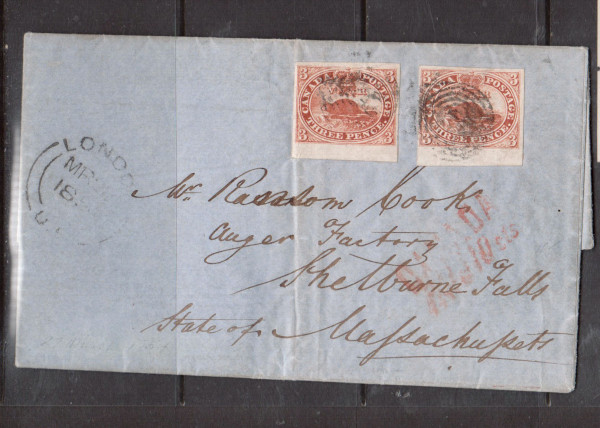 3 CANADA POSTAGE 3
3 THREE PENCE 3
3 CANADA POSTAGE 3
3 THREE PENCE 3
LONDO
MR
18
Mr Ransom Cook
Auger Factory
Shelburne Falls
State of Massachusets
CANADA
PAID 10 Cts